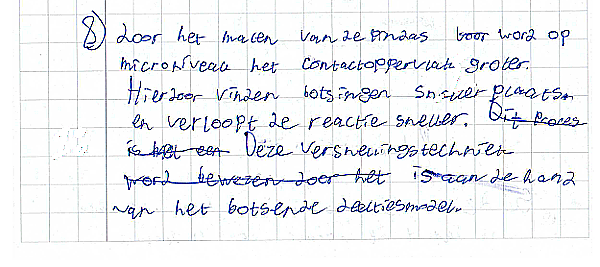 8) door het malen van de pindas boor word op
microniveau het contactoppervlak groter.
Hierdoor vinden botsingen sneller plaatsn
en verloopt de reactie sneller. Dit proces
is het een Deze versnellingstechniek
word bewezen door het is aan de hand
van het botsende deeltjesmodel.